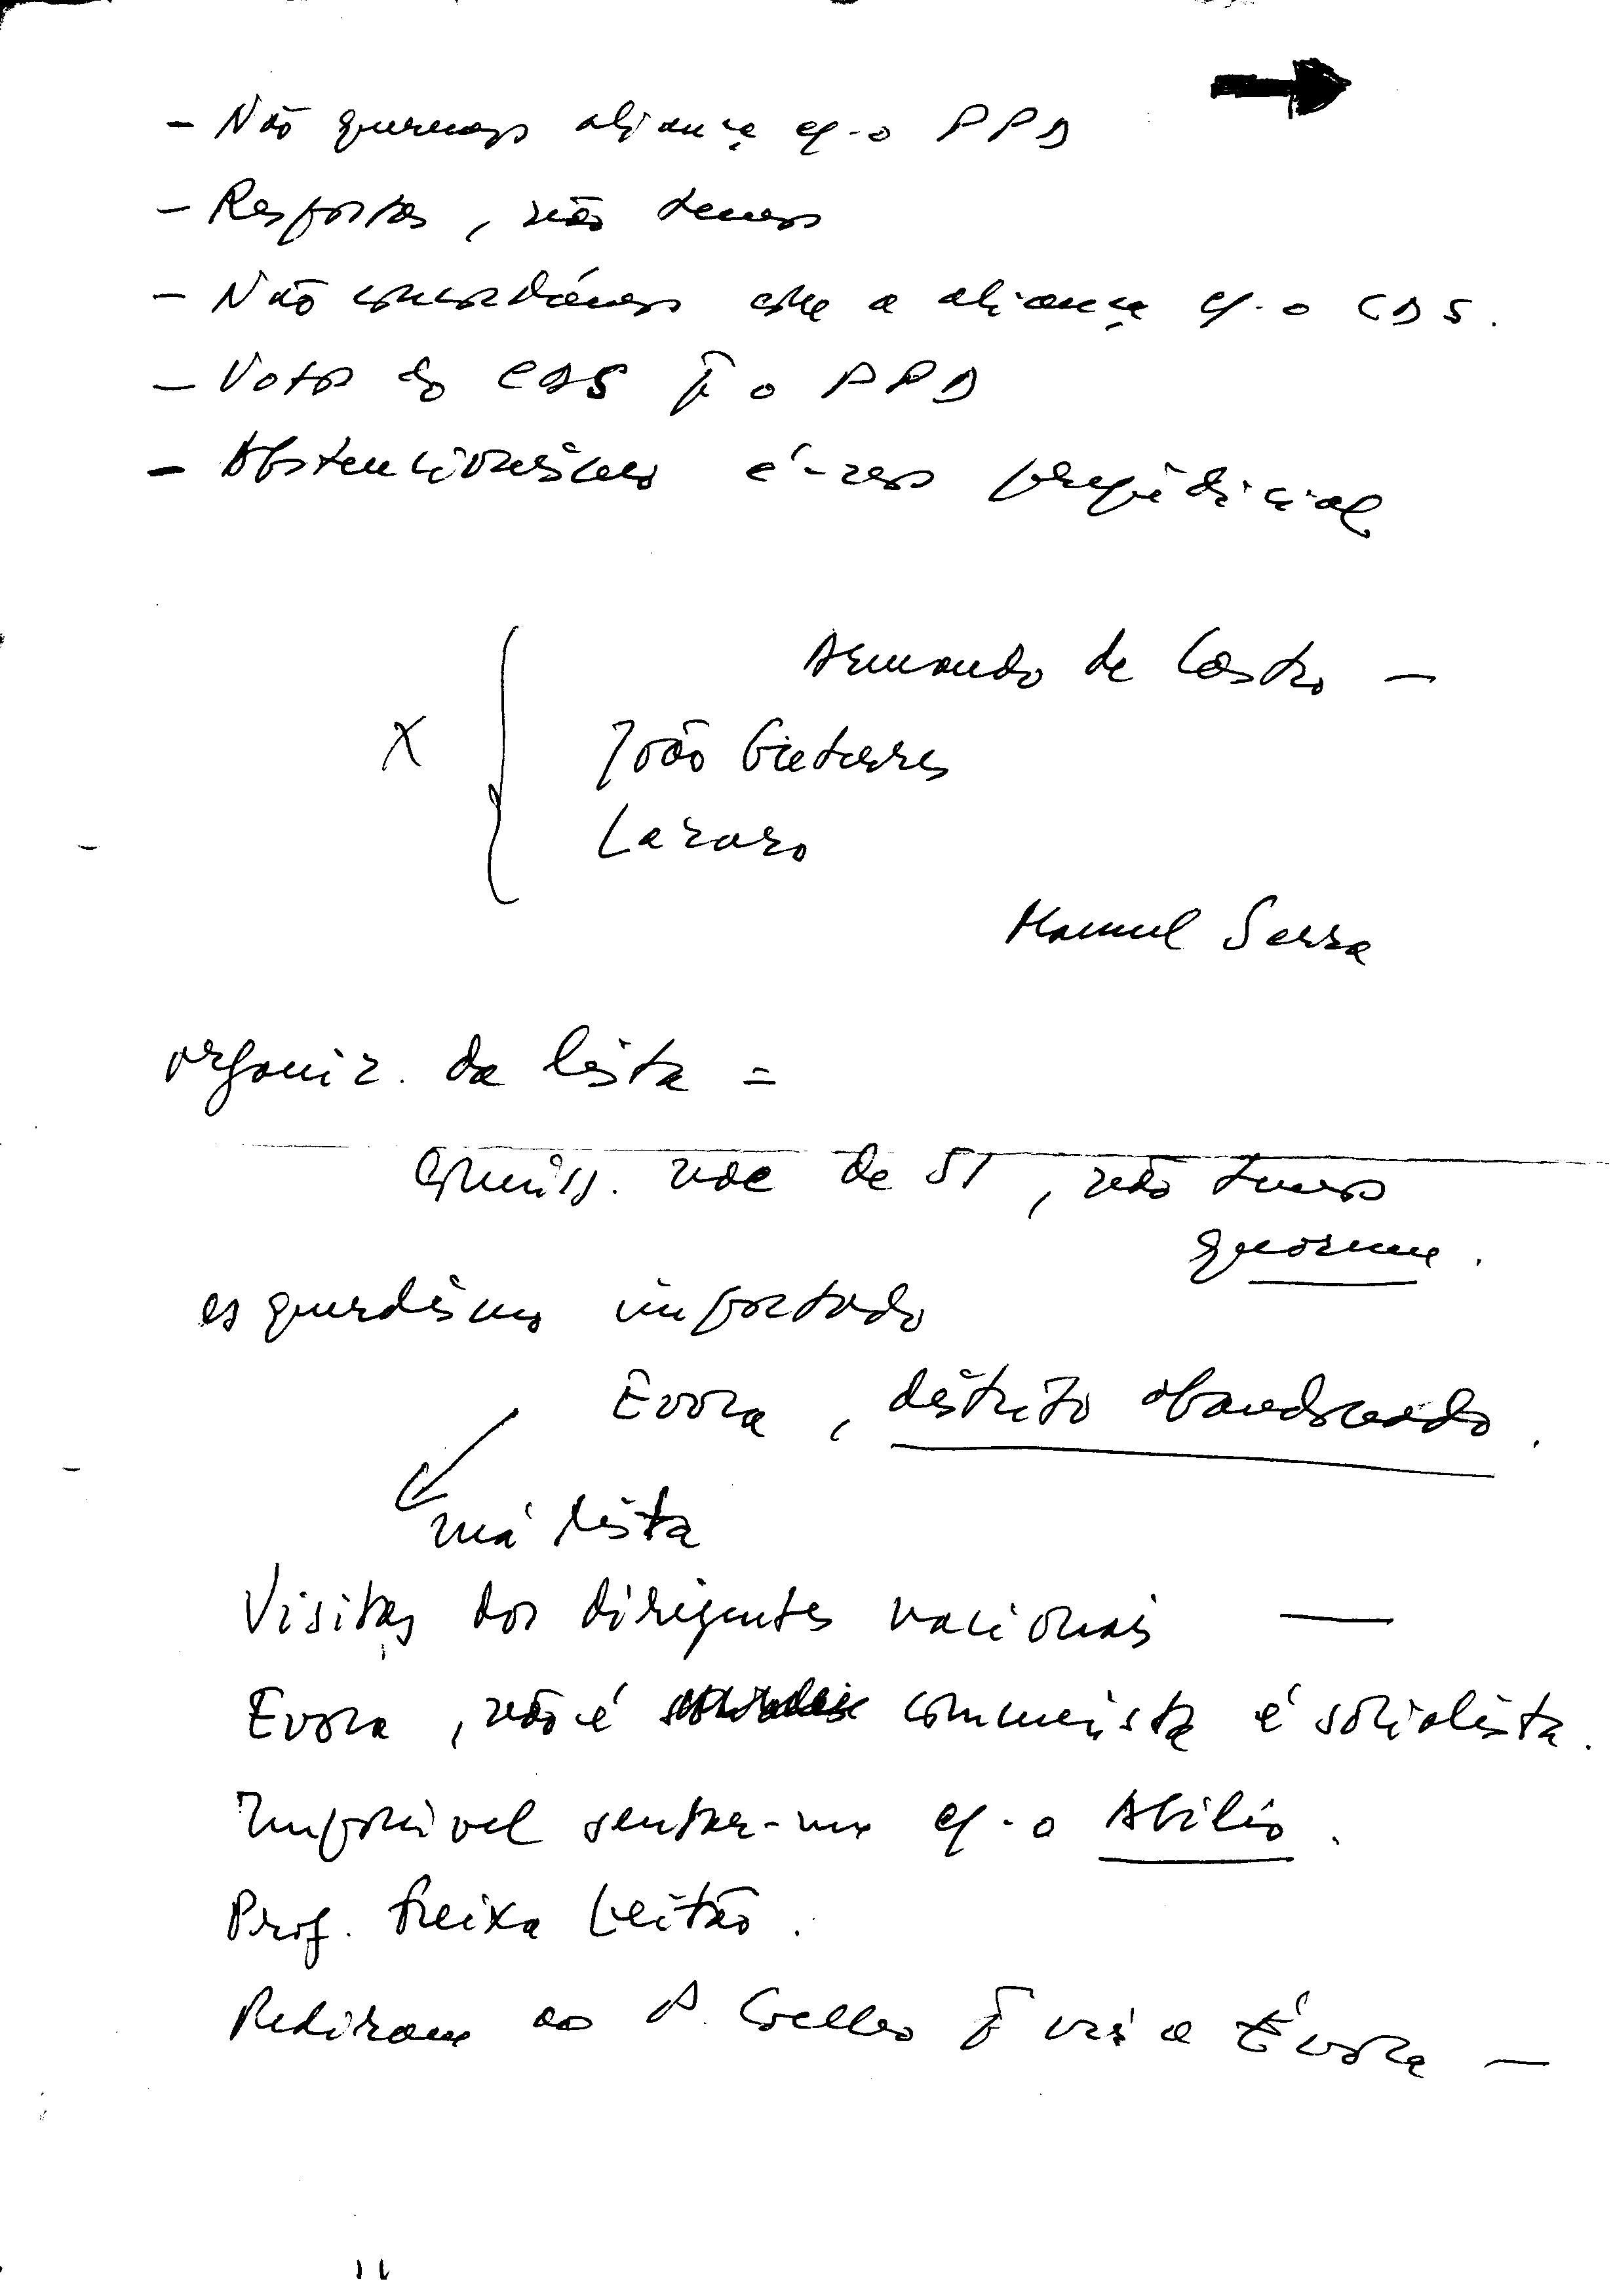 - Não queremos aliança c/-o PPD
- Respostas, não temos
- Não concordámos com a aliança c/-o CDS.
- Votos do CDS p̄ o PPD
- Abstencionismo é-nos prejudicial
Armando de Castro -
X João
Lazaro
Manuel Serra
organiz. da lista =
Comiss. de 51, não temos
quorum.
esquerdismo importado
Evora, distrito abandonado.
má lista
Visitas dos dirigentes nacionais —
Evora, não é comunista é socialista.
Impossível sentar-me c/-o Abílio.
Prof. Freixa Leitão.
Pediram ao P. Coelho p̄ vir a Évora —